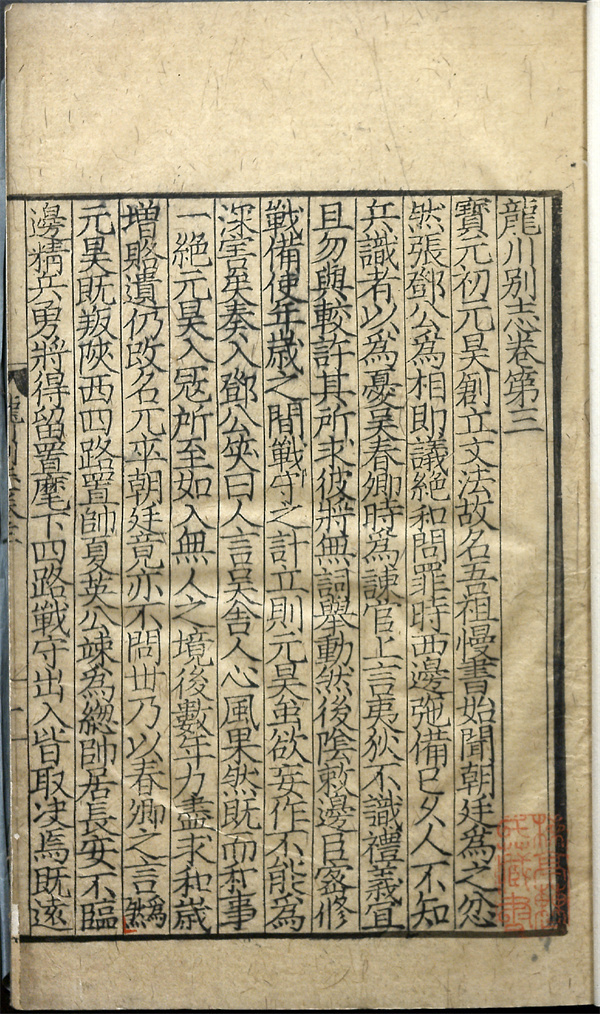 龍川別志卷第三
寶元初元昊創立文法故名吾祖慢書始聞朝廷爲之忿
然張鄧公爲相即議絶和問罪時西邊弛備已久人不知
兵識者以爲憂吴春卿時爲諫官上言夷狄不識禮義宜
且勿與較許其所求彼將無詞舉動然後陰敕邊臣宻修
戰備使年歲之間戰守之計立則元昊虽欲妄作不能爲
深害矣奏入鄧公笑曰人言吴舍人心風果然既而和事
一絶元昊入冦所至如入無人之境後數年力盡求和歲
増賂遺仍改名兀卒朝廷竟亦不問世乃以春卿之言爲然
元昊既叛陝西四路置帥夏英公竦為緫帥居長安不臨
邊精兵勇將得留置麾下四路戰守出入皆取决焉既逺